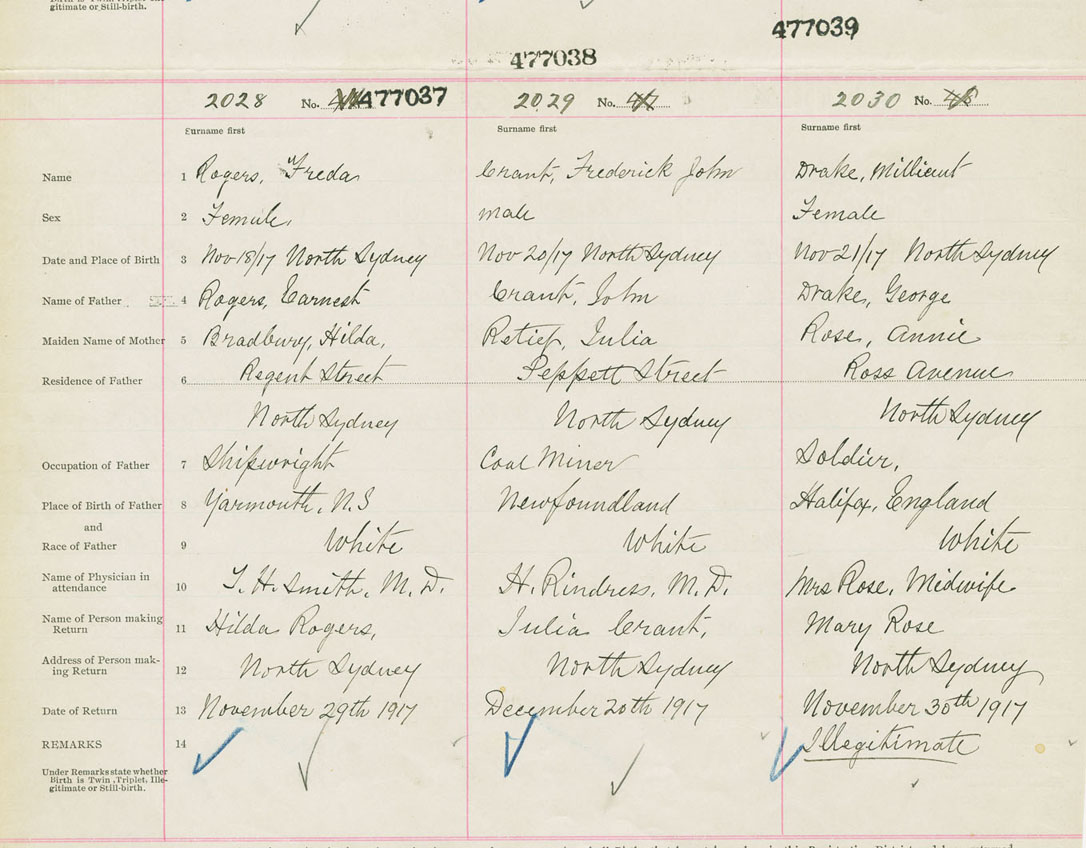 gitimate or Still-birth.
477039
477038
2028 No. 477037 2029 No. 47 2030 No. 48
Surname first Surname first Surname first
Name 1 Rogers, Freda Grant, Frederick John Drake, Millicent
Sex 2 Female, male Female
Date and Place of Birth 3 Nov 18/17 North Sydney Nov 20/17 North Sydney Nov 21/17 North Sydney
Name of Father 4 Rogers, Earnest Grant, John Drake, George
Maiden Name of Mother 5 Bradbury, Hilda, Retief, Julia Rose, Annie
Residence of Father 6 Regent Street Peppett Street Ross Avenue
North Sydney North Sydney North Sydney
Occupation of Father 7 Shipwright Coal Miner Soldier,
Place of Birth of Father 8 Yarmouth, N.S Newfoundland Halifax, England
and
Race of Father 9 White White White
Name of Physician in
attendance 10 T. H. Smith, M. D. H. Rindress, M. D. Mrs Rose, Midwife
Name of Person making
Return 11 Hilda Rogers, Julia Grant, Mary Rose
Address of Person mak-
ing Return 12 North Sydney North Sydney North Sydney
Date of Return 13 November 29th 1917 December 20th 1917 November 30th 1917
REMARKS 14 Illegitimate
Under Remarks state whether
Birth is Twin, Triplet, Ille-
gitimate or Still-birth.